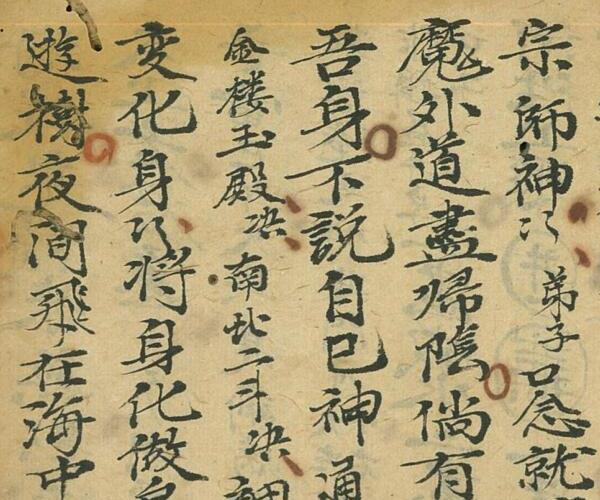 宗師神〻弟子口念就
魔外道盡帰陰倘有
吾身不說自己神通
金楼玉殿决南北二斗决
变化身〻将身化做
遊樹夜间飛在海中